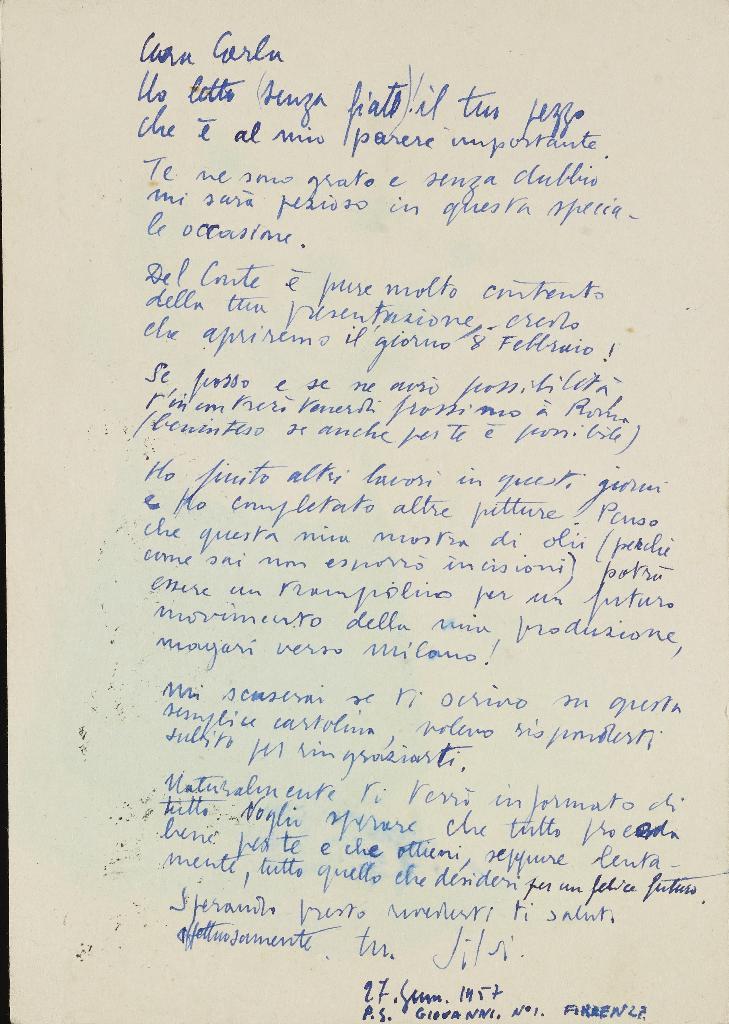 Cara Carla
Ho letto (senza fiato)! il tuo pezzo
che è al mio parere importante.
Te ne sono grato e senza dubbio
mi sarà pezioso in questa specia-
le occasione.
Del Conte è pure molto contento
della tua presentazione, credo
che apriremo il giorno 8 Febbraio!
Se posso e se ne avrò possibilità
t'incontrerò Venerdì prossimo a Roma
(beninteso se anche per te è possibile)
Ho finito altri lavori in questi giorni
e ho completato altre pitture. Penso
che questa mia mostra di olii (perchè
come sai non esporrò incisioni) potrà
essere un trampolino per un futuro
movimento della mia produzione,
magari verso Milano!
Mi scuserai se ti scrivo su questa
semplice cartolina, volevo risponderti
subito per ringraziarti.
Naturalmente ti terrò informato di
tutto. Voglio sperare che tutto proceda
bene per te e che ottieni, seppure lenta-
mente, tutto quello che desideri per un felice futuro.
Sperando presto rivederti ti saluto
affettuosamente. tuo
27. Genn. 1957
P.S. GIOVANNI. No 1. FIRENZE